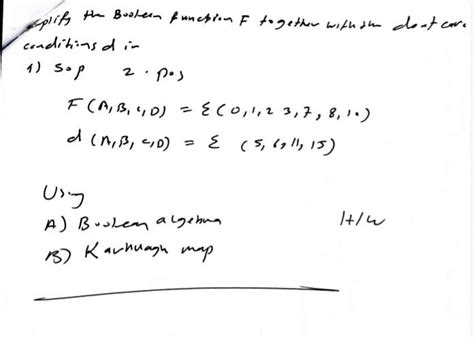 the Boolean function F together with the dont care
conditions d in
1) Sop 2. pos
F (A,B,C,D) = Σ (0,1,2 3,7,8,10)
d (A,B,C,D) = Σ (5,6,11,15)
Using
A) Boolean algebra H/W
B) Karnuagh map